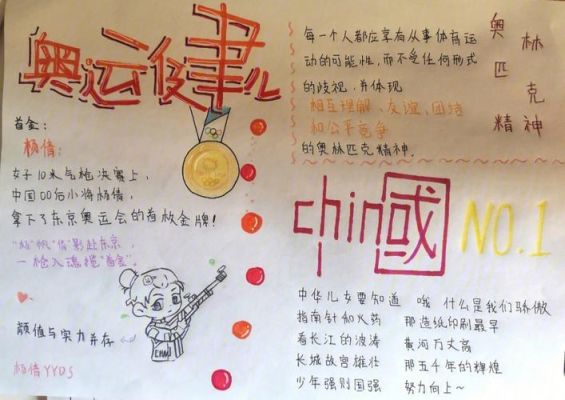 奥运健儿
首金：
杨倩：
女子10米气枪决赛上，
中国00后小将杨倩，
拿下了东京奥运会的首枚金牌！
一枪入魂揽"首金"。
颜值与实力并存
杨倩YYDS
CHINA
每一个人都应享有从事体育运
动的可能性，而不受任何形式
的歧视，并体现
相互理解、友谊、团结
和公平竞争
的奥林匹克精神。
奥林
匹克
精神
chin国
NO.1
中华儿女要知道 哦 什么是我们骄傲
指南针和火药 那造纸印刷最早
看长江的波涛 黄河万丈高
长城故宫雄壮 那五千年的辉煌
少年强则国强 努力向上~